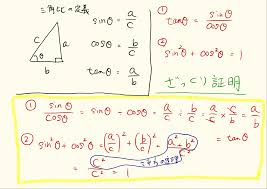 三角比の定義
sinθ = a/c
cosθ = b/c
tanθ = a/b
c a θ b
① tanθ = sinθ/cosθ
② sin²θ + cos²θ = 1
ざっくり証明
① sinθ/cosθ = sinθ ÷ cosθ = a/c ÷ b/c = a/c × c/b = a/b
= tanθ
② sin²θ + cos²θ = (a/c)² + (b/c)² = a² + b²/c²
= c²/c² = 1